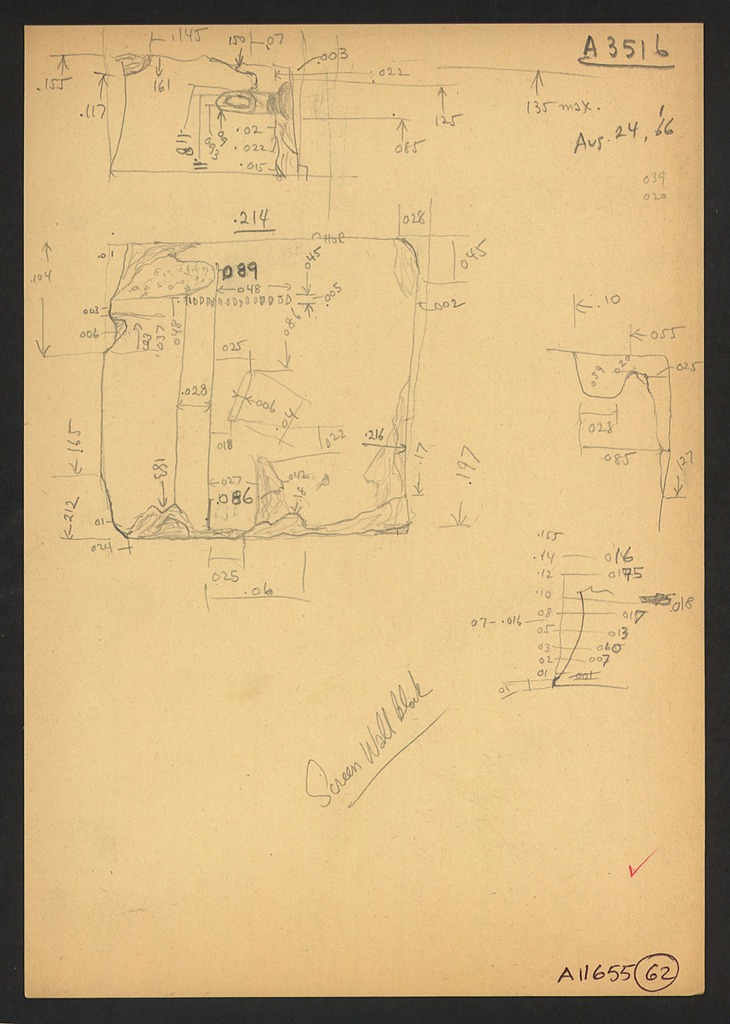 A 3516
Aug. 24, '66
.1145
150
.07
.003
.022
.155
.117
161
135 max.
125
085
.02
.022
.015
039
020
.214
028
045
.01
.104
089
.048
045
.005
.002
003
006
.037
.048
025
.086
.028
.006
.04
018
.022
.216
.17
.197
.165
.183
.212
.027
.086
.042
.18
.01
024
025
.06
.10
.055
.025
039
020
028
.085
.27
.155
.14 016
.12 0175
.10 018
08 017
07 - .016
05 013
03
02 007
01 001
01
Screen Wall Block
A11655 62